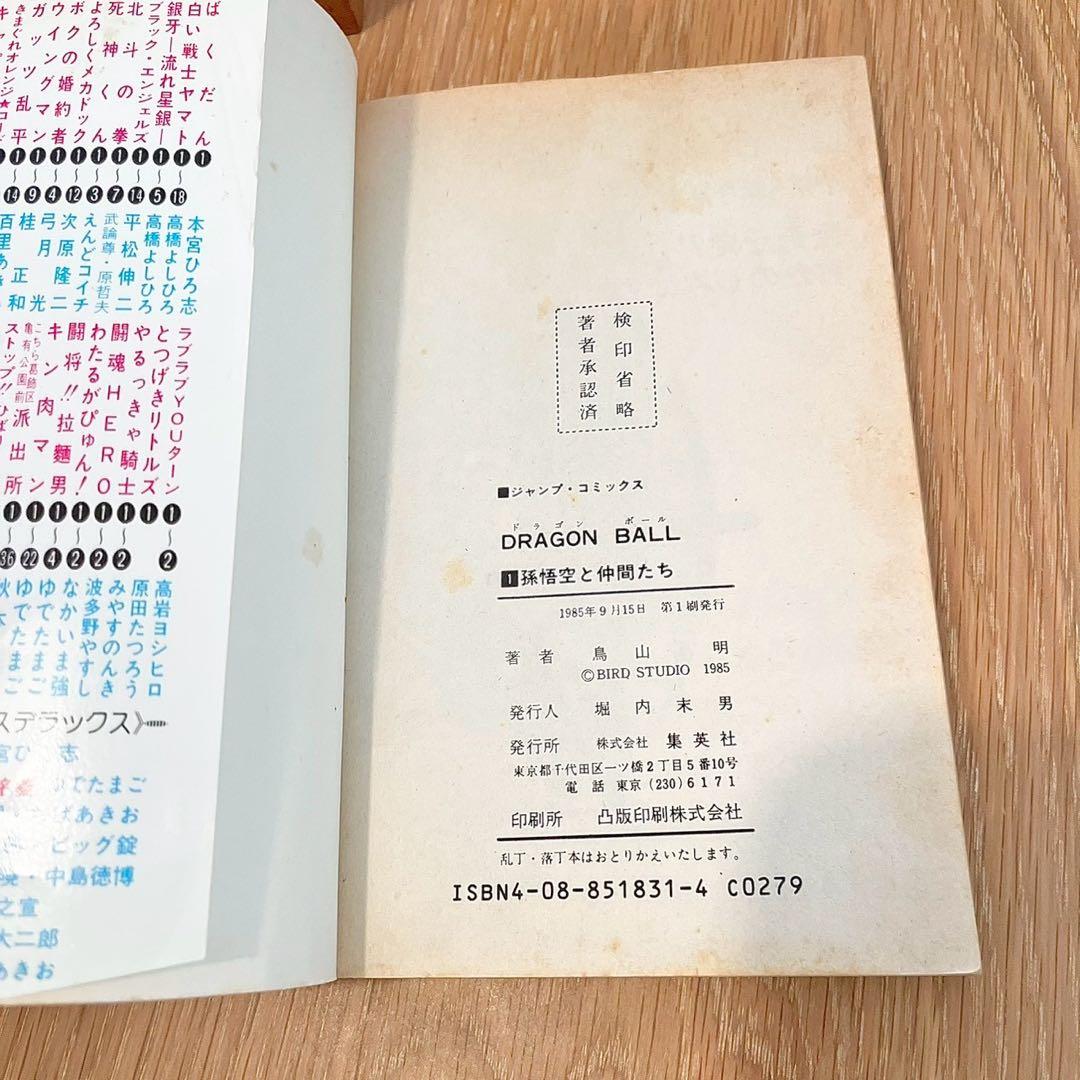 ばくだん ❶ 本宮ひろ志
白い戦士ヤマト ❶〜⓲ 高橋よしひろ
銀牙―流れ星銀― ❶〜❺ 高橋よしひろ
ブラック・エンジェルズ ❶〜⓮ 平松伸二
北斗の拳 ❶〜❼ 武論尊・原哲夫
死神くん ❶〜❸ えんどコイチ
よろしくメカドック ❶〜⓬ 次原隆二
ボクの婚約者 ❶〜❹ 弓月光
ウイングマン ❶〜❾ 桂正和
ガッツ乱平 ❶〜⓮ 百里あき
きまぐれオレンジ★
ラブラブYOUターン ❶〜❷ 高岩ヨシヒロ
とつげきリトルズ ❶ 原田たつろう
やるっきゃ騎士 ❶〜❷ みやすのんき
闘魂HERO ❶〜❷ 波多野やすし
わたるがぴゅん! ❶〜❷ なかいま強
闘将!!拉麵男 ❶〜❹ ゆでたまご
キン肉マン ❶〜㉒ ゆでたまご
こちら葛飾区亀有公園前派出所 ❶〜㊱ 秋
ストップ!!ひばり
スデラックス》
ゆでたまご
ばあきお
ビッグ錠
・中島徳博
之宣
大二郎
あきお
検印省略
著者承認済
■ジャンプ・コミックス
ドラゴン ボール
DRAGON BALL
1 孫悟空と仲間たち
1985年9月15日 第1刷発行
著者 鳥山明
©BIRD STUDIO 1985
発行人 堀内末男
発行所 株式会社 集英社
東京都千代田区一ツ橋2丁目5番10号
電話 東京(230)6171
印刷所 凸版印刷株式会社
乱丁・落丁本はおとりかえいたします。
ISBN4-08-851831-4 C0279